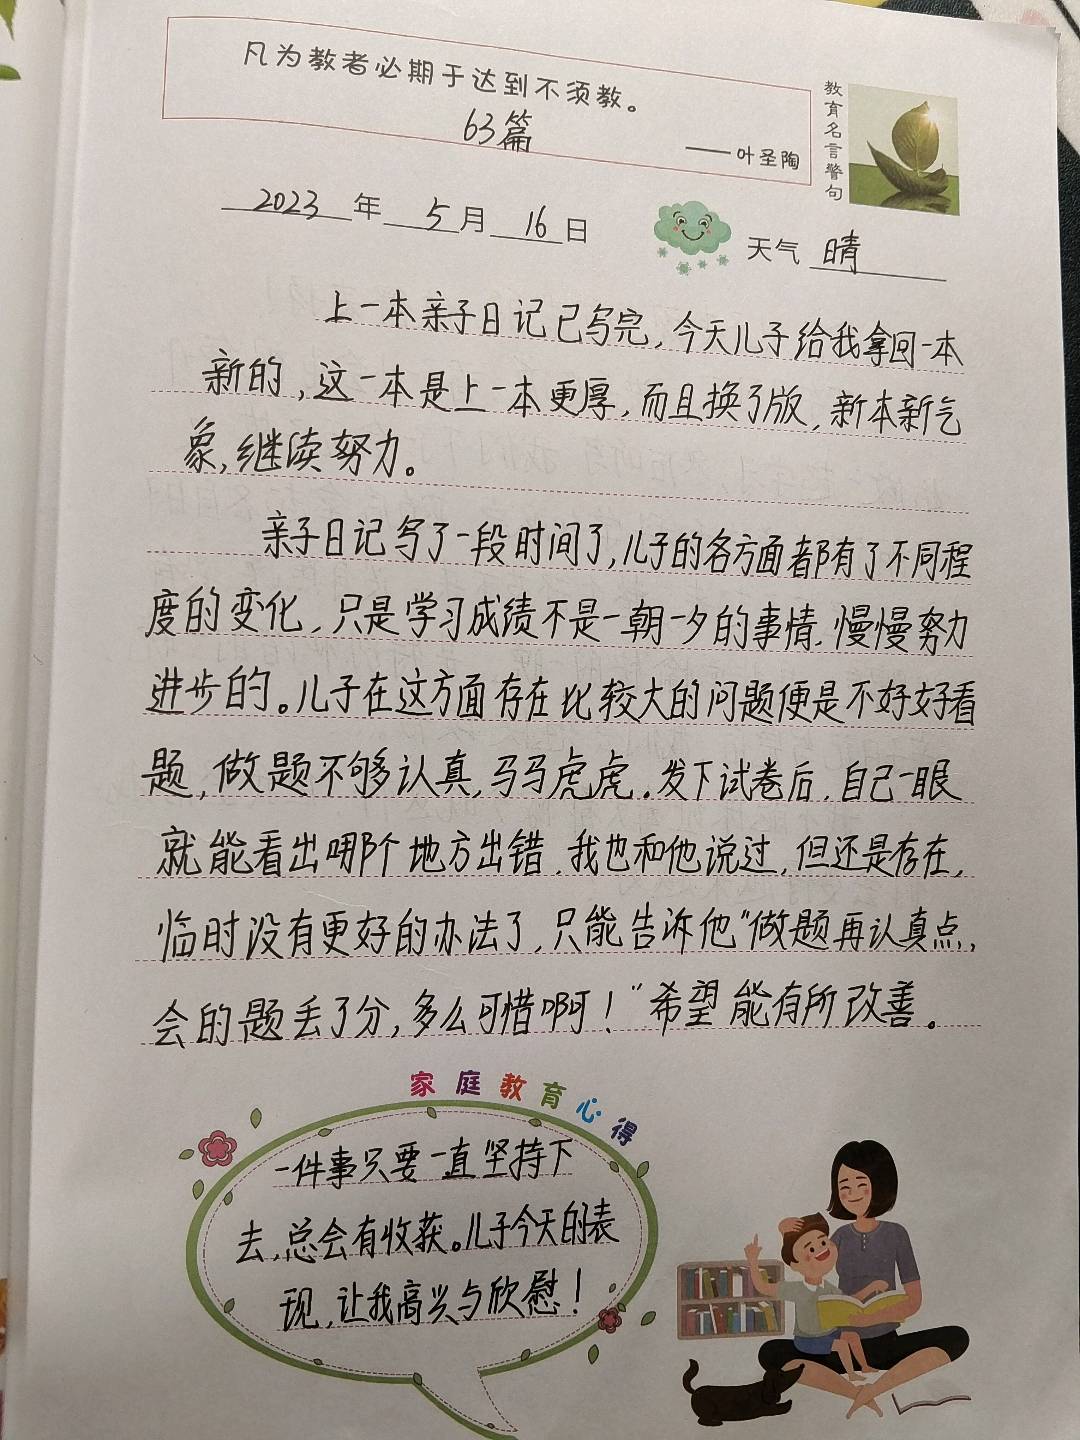 凡为教者必期于达到不须教。
63篇
——叶圣陶
教育名言警句
2023年5月16日
天气 晴
上一本亲子日记已写完,今天儿子给我拿回一本
新的,这一本是上一本更厚,而且换了版,新本新气
象,继续努力。
亲子日记写了一段时间了,儿子的各方面都有了不同程
度的变化,只是学习成绩不是一朝一夕的事情.慢慢努力
进步的。儿子在这方面存在比较大的问题便是不好好看
题,做题不够认真,马马虎虎.发下试卷后,自己一眼
就能看出哪个地方出错.我也和他说过,但还是存在,
临时没有更好的办法了,只能告诉他"做题再认真点,
会的题丢了分,多么可惜啊!"希望能有所改善。
家庭教育心得
一件事只要一直坚持下
去,总会有收获。儿子今天的表
现,让我高兴与欣慰!